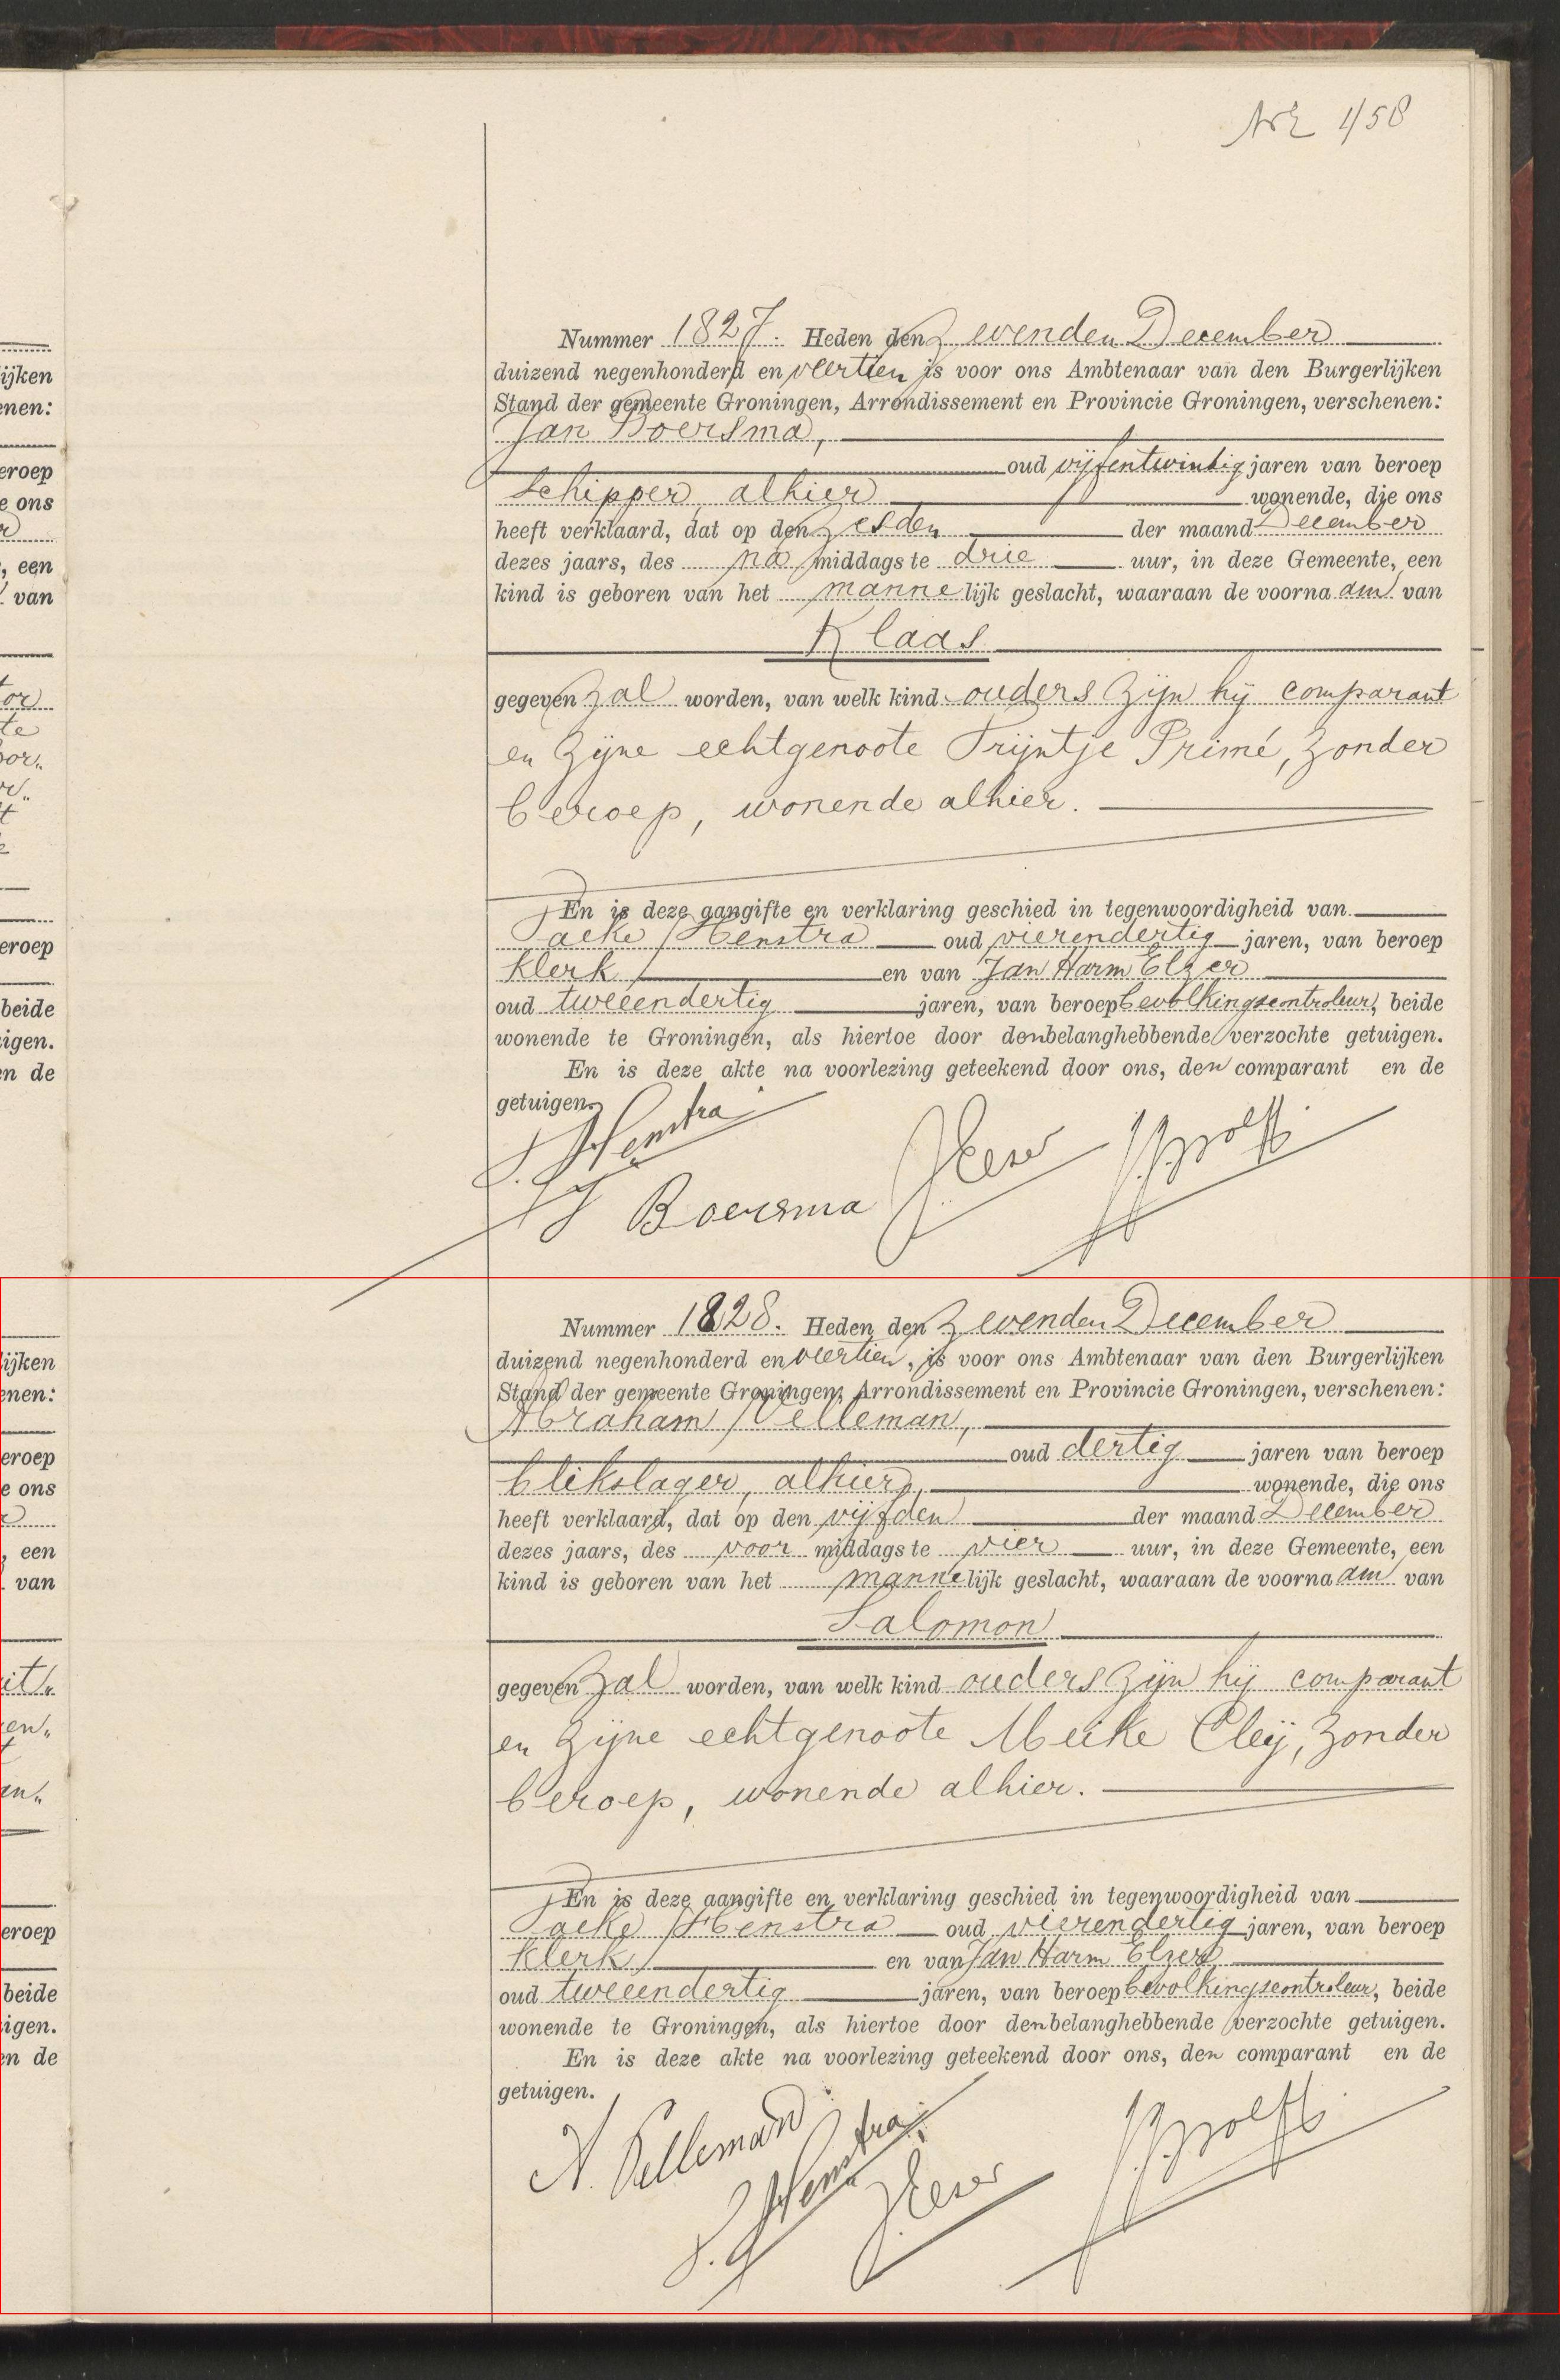 458
Nummer 1827. Heden den zevenden December
duizend negenhonderd en veertien is voor ons Ambtenaar van den Burgerlijken
Stand der gemeente Groningen, Arrondissement en Provincie Groningen, verschenen:
Jan Boersma,
oud vijfentwintig jaren van beroep
schipper, alhier wonende, die ons
heeft verklaard, dat op den zesden der maand December
dezes jaars, des na middags te drie uur, in deze Gemeente, een
kind is geboren van het mannelijk geslacht, waaraan de voornaam van
Klaas
gegeven zal worden, van welk kind ouders zijn hij comparant
en zijne echtgenoote Trijntje Primé, zonder
beroep, wonende alhier.
En is deze aangifte en verklaring geschied in tegenwoordigheid van
Taeke Henstra oud vierendertig jaren, van beroep
klerk en van Jan Harm Elzer
oud tweeendertig jaren, van beroep bevolkingscontroleur, beide
wonende te Groningen, als hiertoe door den belanghebbende verzochte getuigen.
En is deze akte na voorlezing geteekend door ons, den comparant en de
getuigen.
T. Henstra
J Boersma
Nummer 1828. Heden den zevenden December
duizend negenhonderd en veertien, is voor ons Ambtenaar van den Burgerlijken
Stand der gemeente Groningen, Arrondissement en Provincie Groningen, verschenen:
Abraham Velleman,
oud dertig jaren van beroep
blikslager, alhier, wonende, die ons
heeft verklaard, dat op den vijfden der maand December
dezes jaars, des voor middags te vier uur, in deze Gemeente, een
kind is geboren van het mannelijk geslacht, waaraan de voornaam van
Salomon
gegeven zal worden, van welk kind ouders zijn hij comparant
en zijne echtgenoote Meike Cleij, zonder
beroep, wonende alhier.
En is deze aangifte en verklaring geschied in tegenwoordigheid van
Taeke Henstra oud vierendertig jaren, van beroep
klerk en van Jan Harm Elzer
oud tweeendertig jaren, van beroep bevolkingscontroleur, beide
wonende te Groningen, als hiertoe door den belanghebbende verzochte getuigen.
En is deze akte na voorlezing geteekend door ons, den comparant en de
getuigen.
A. Velleman
T. Henstra